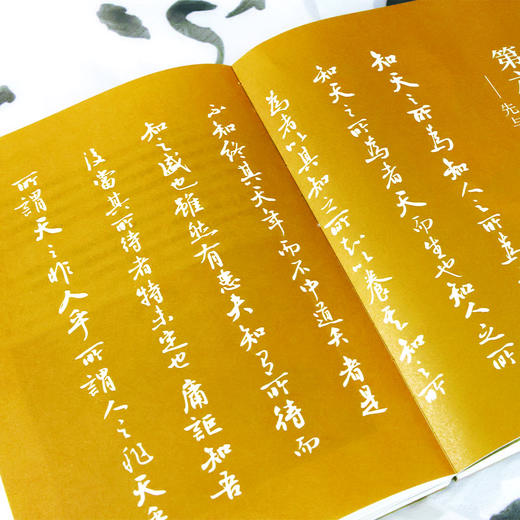 第
先
知天之所為知人之所為
知天之所為者天而生也知人之所
為者以其知之所知以養其知之所
不知終其天年而不中道夭者是
知之盛也雖然有患夫知有所待而
後當其所待者特未定也庸詎知吾
所謂天之非人乎所謂人之非天乎